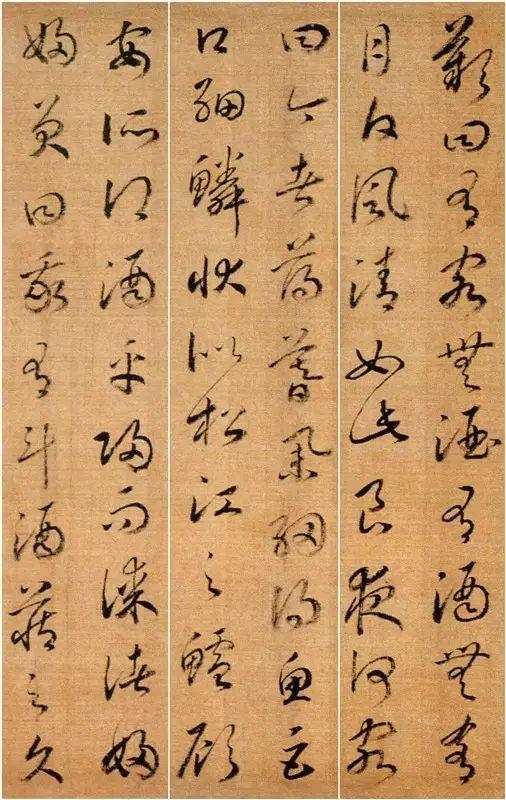 歎曰有客無酒有酒無肴
月白風清如此良夜何客
曰今者薄暮舉網得魚巨
口細鱗狀似松江之鱸顧
安所得酒乎歸而謀諸婦
婦笑曰我有斗酒藏之久